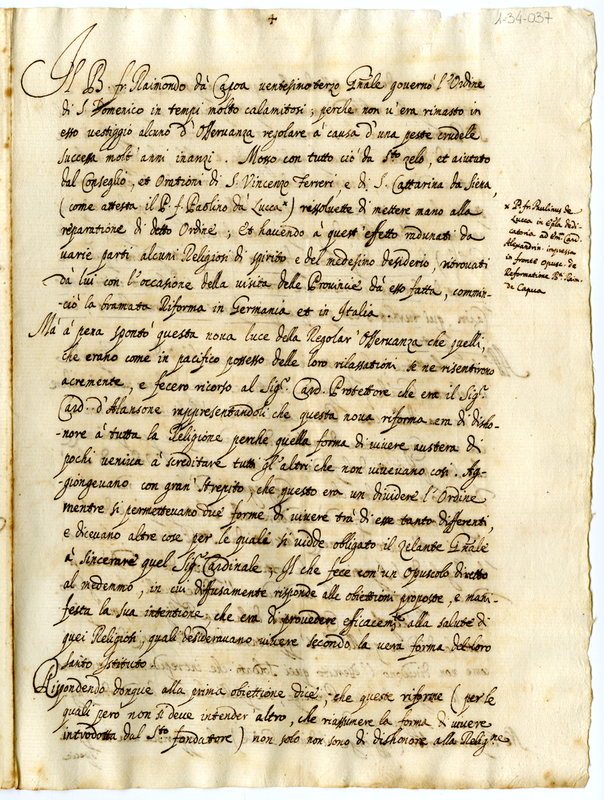 +
4-34-037
Il B. fr. Raimondo da Capoa ventesimoterzo Gñale governò l'Ordine
di S. Domenico in tempi molto calamitosi; perche non v'era rimasto in
esso vestiggio alcuno d'Osservanza regolare à causa d'una peste crudele
successa molt'anni inanzi. Mosso con tutto ciò da Sto zelo, et aiutato
dal Conseglio, et Orationi di S. Vincenzo Ferreri e di S. Cattarina da Siena,
(come attesta il P. f. Paolino dà Lucca*) ressoluette di mettere mano alla
reparatione di detto Ordine; Et havendo à quest'effetto radunati da
varie parti alcuni Religiosi di spirito e del medesimo desiderio, ritrovati
dà lui con l'occasione della visita delle Provincie dà esso fatta, comin-
ciò la bramata Riforma in Germania et in Italia
x P. fr. Paulinus de
Lucca in epla dedi-
catoria ad Card.
Alexandrin. impressa
in fronte opusc. de
Reformatione Bti Raim.
de Capua
Mà à pena spontò questa nova luce della Regolar'Osservanza che quelli,
che erano come in pacifico possesso delle loro rilassationi se ne risentirono
acremente, e fecero ricorso al Sigr. Card. Protettore che era il Sigr.
Card. d'Alansone rappresentandoli che questa nova riforma era di disho-
nore à tutta la Religione perche quella forma di vivere austera di
pochi veniva à screditare tutti gl'altri che non vivevano così. Ag-
giongevano con gran strepito, che questo era un dividere l'Ordine
mentre si permettevano due forme di vivere trà di esse tanto differenti,
e dicevano altre cose per le quali si vidde obligato il zelante Gñale
à sincerare quel Sigr. Cardinale; Il che fece con un Opuscolo diretto
al medemmo, in cui diffusamente risponde alle obiettioni proposte, e mani-
festa la sua intentione, che era di provedere efficacemte alla salute di
quei Religiosi, quali desideravano vivere secondo la vera forma del loro
santo Istituto.
Rispondendo donque alla prima obiettione dice, che queste riforme (per le
quali però non si deve intender altro, che riassumere la forma di vivere
introdotta dal Sto fondatore) non solo non sono di dishonore alla Religne